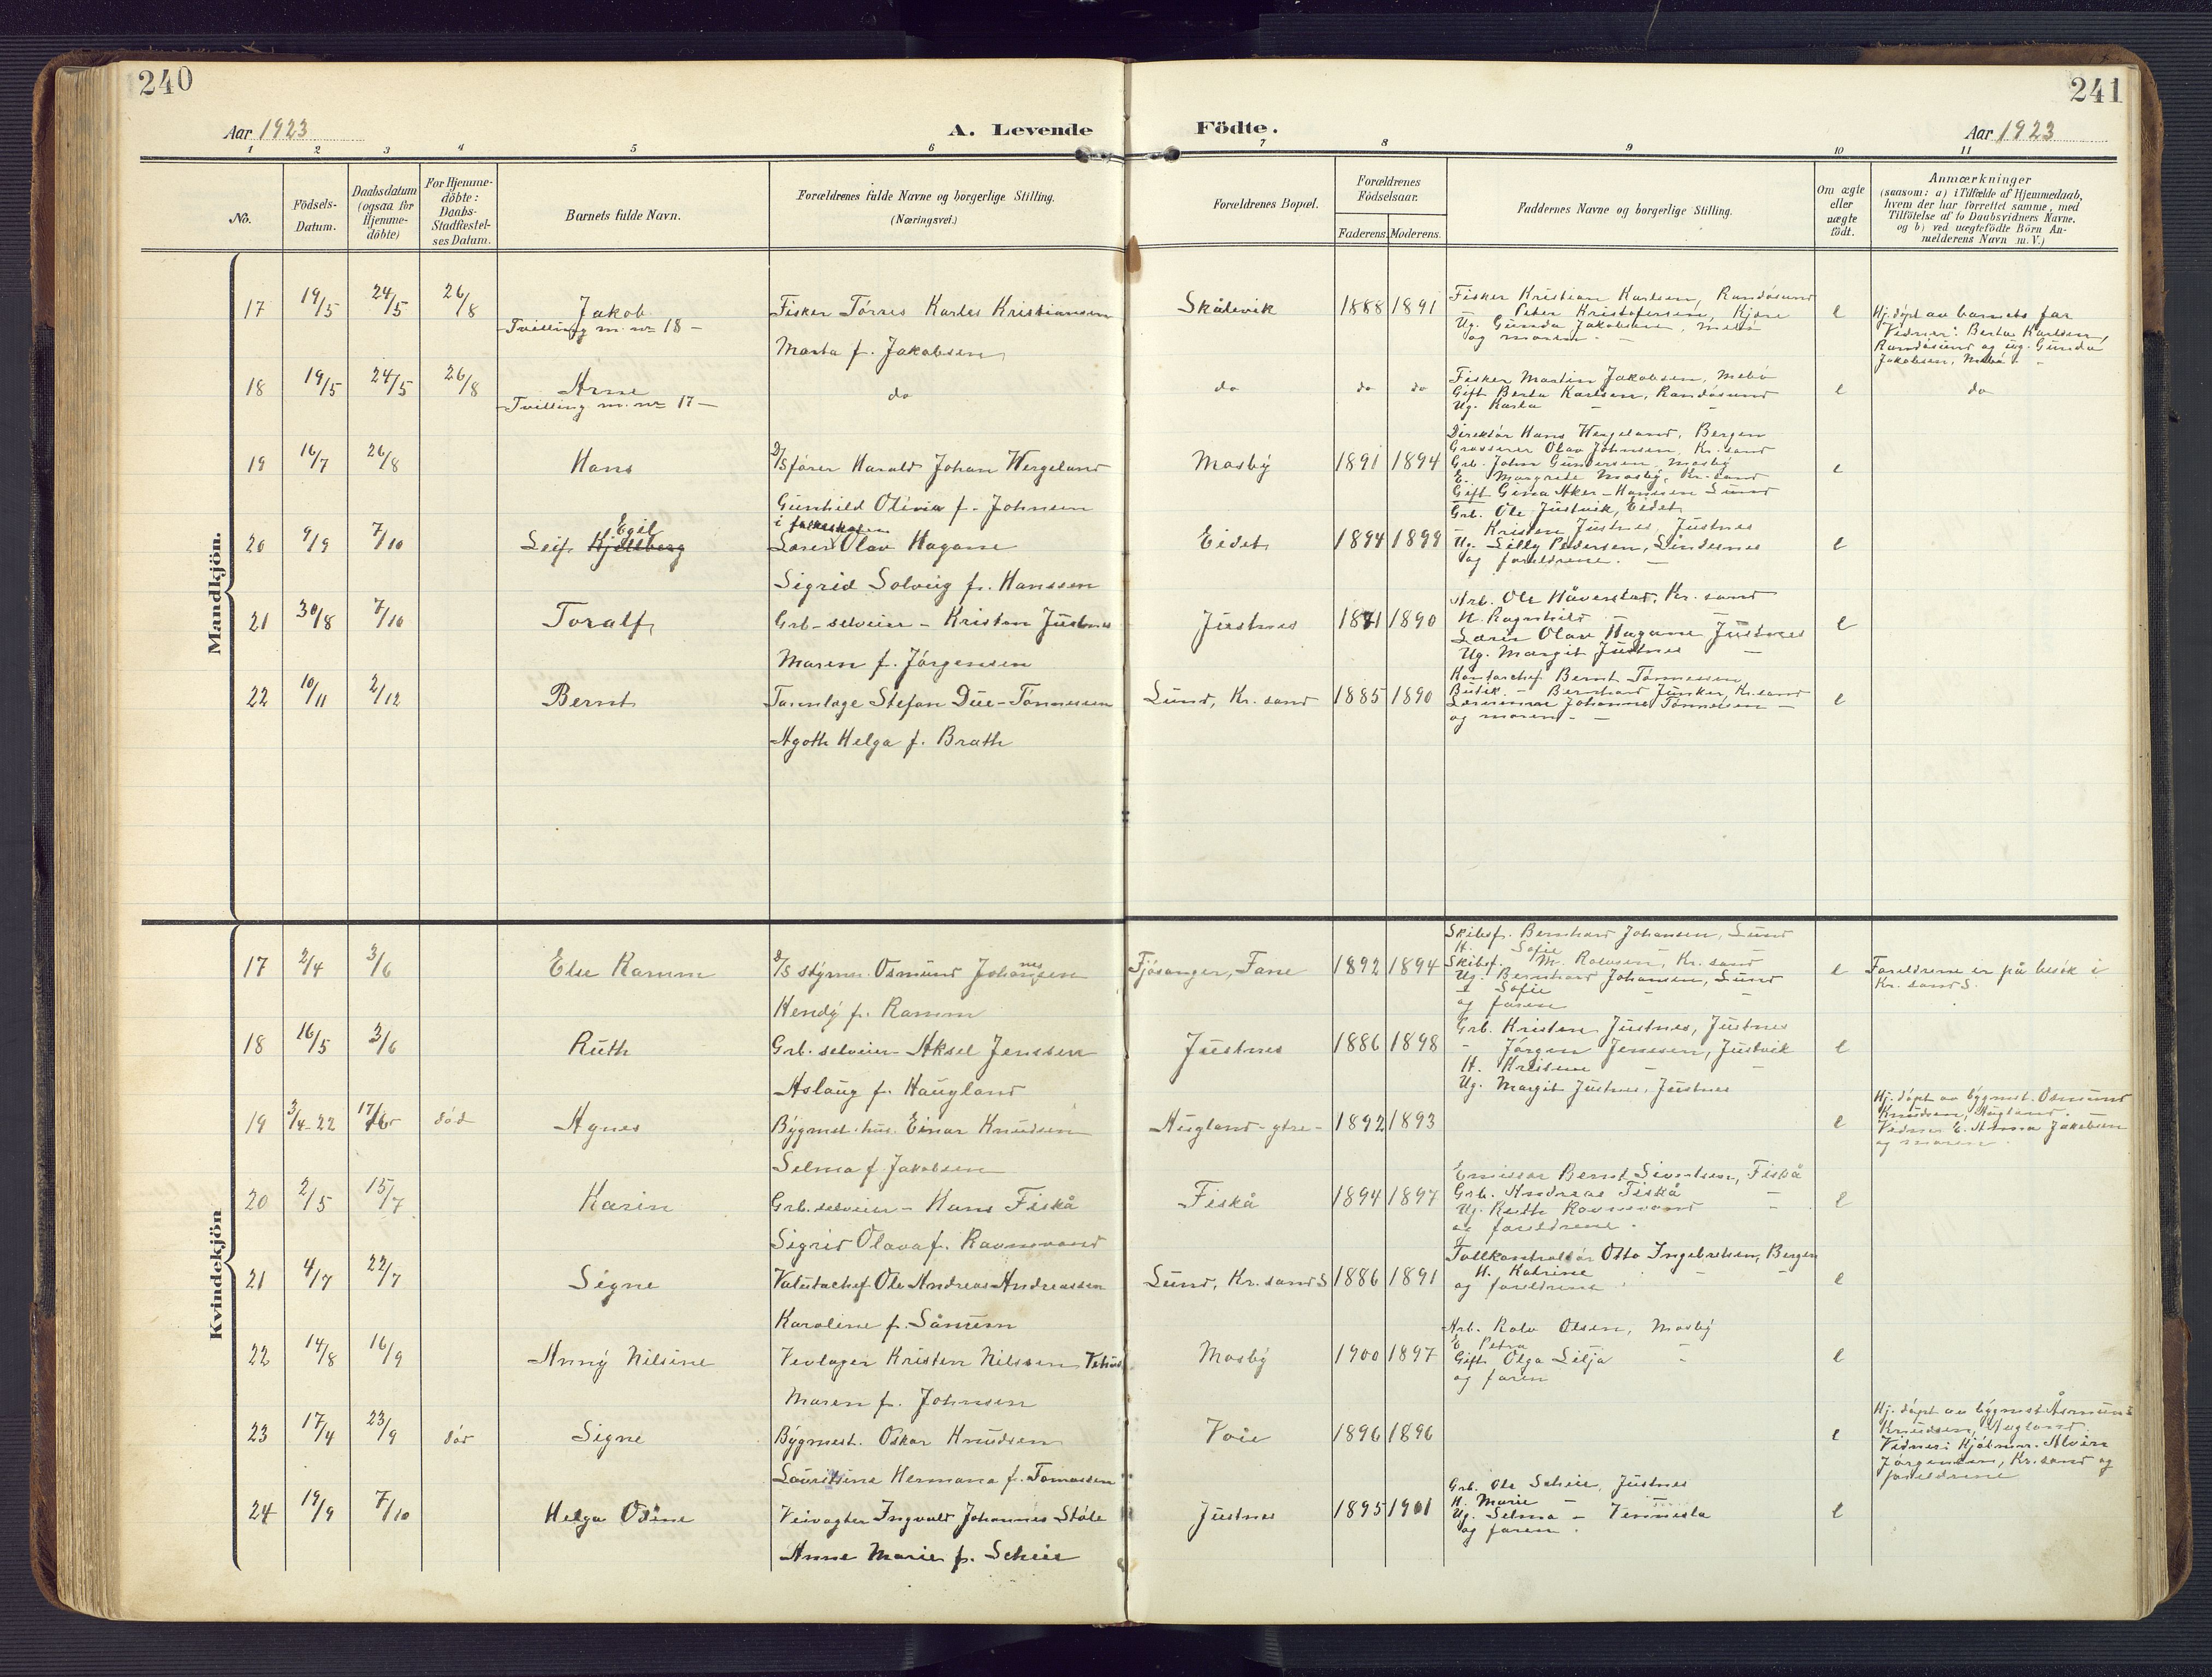 240
241
Aar 1923
A. Levende
Födte.
Aar 1923
1 2 3 4 5 6 7 8 9 10 11
No.
Födsels-
Datum.
Daabsdatum
(ogsaa for
Hjemme-
döbte)
For Hjemme-
döbte:
Daabs-
Stadfæstel-
ses Datum.
Barnets fulde Navn.
Forældrenes fulde Navne og borgerlige Stilling.
(Næringsvei.)
Forældrenes Bopæl.
Forældrenes
Födselsaar.
Faderens. Moderens.
Faddernes Navne og borgerlige Stilling.
Om ægte
eller
uægte
födt.
Anmærkninger
(saasom: a) i Tilfælde af Hjemmedaab,
hvem der har forrettet samme, med
Tilföielse af to Daabsvidners Navne,
og b) ved uægtefödte Börn An-
melderens Navn m. V.)
Mandkjön.
17 19/5 24/5 26/8
Jakob
Tvilling m. nr 18 -
Fisker Tórres Karles Kristiansen
Marta f. Jakobsen
Skålevik
1888 1891
Fisker Kristian Karlsen, Randósund
Peter Kristofersen, Kjóre
Ug. Gunda Jakobsen,
og moren. -
e
Hj. döpt av barnets far
Vidner: Berta Karlsen,
Randósund og ug. Gunda
Jakobsen, Mebó. -
18 19/5 24/5 26/8
Arne
Tvilling m. nr 17 -
do
do
do do
Fisker Martin Jakobsen, Mebó
Gift Berta Karlsen, Randósund
Ug. Karla - -
e
do
19 16/7 26/8
Hans
D/S förer Harald Johan Wergeland
Gunhild Olivia f. Johnsen
Mosby
1891 1894
Direktör Hans Wergeland, Bergen
Grosserer Olav Johnsen, Kr. sand
Grb. John Gundersen, Mosby
E. Margrete Mosby, Kr. sand
Gift Gina Aker-Hanssen Lund
e
20 9/9 7/10
Egil
Leif Kjellberg
i folkeskolen
Lærer Olav Hagane
Sigrid Solveig f. Hanssen
Eidet
1894 1899
Grb. Ole Justvik, Eidet
- Kristen Justnes, Justnes
Ug. Lilly Pedersen, Lindesnes
og foreldrene. -
e
21 30/8 7/10
Toralf
Grb - selveier - Kristen Justnes
Maren f. Jörgensen
Justnes
1871 1890
Arb. Ole Håverstad, Kr. sand
H. Ragnhild -
Lærer Olav Hagane Justnes
Ug. Margit Justnes -
e
22 10/11 2/12
Bernt
Tannlæge Stefan Due-Tönnessen
Agoth Helga f. Brath
Lund, Kr. sand
1885 1890
Kontorchef Bernt Tönnessen
Butik. - Bernhard Junker, Kr. sand
Johanne Tönnesen -
og moren - -
e
Kvindekjön
17 2/4 3/6
Else Ramm
D/S styrm. Osmund Johannessen
Hendy f. Ramm
Fjósanger, Fane
1892 1894
Skibsf. Bernhard Johansen, Lund
H. Sofie
Skibsf. M. Kr. sand
Ug. Bernhard Johansen, Lund
- Sofie - -
og faren
e
Foreldrene er på besök i
Kr. sand S.
18 16/5 3/6
Ruth
Grb. selveier - Aksel Jenssen
Aslaug f. Haugland
Justnes
1886 1898
Grb. Kristen Justnes, Justnes
- Jörgen Jenssen, Justvik
H. Kristine - -
Ug. Margit Justnes, Justnes
e
19 3/4-22 17/6 död
Agnes
Bygmst. hus. Einar Knudsen
Selma f. Jakobsen
Augland - ytre -
1892 1893
e
Hj. döpt av bygmst. Osmund
Knudsen, Augland. -
Vidner E. Anna Jakobsen
og moren.
20 2/5 15/7
Karin
Grb. selveier - Hans Fiskå
Sigrid Olava f. Ravnevand
Fiskå
1894 1897
Emissær Bernt Sivertsen, Fiskå
Grb. Andreas Fiskå -
Ug. Ruth Ravnevand -
og foreldrene.
e
21 4/7 22/7
Signe
Valutachef Ole Andreas Andreassen
Karoline f. Sånum
Lund, Kr. sand S
1886 1891
Tollkontrollör Otto Ingebretsen, Bergen
H. Katrine - -
og foreldrene
e
22 14/8 16/9
Anny Nilsine
Kristen Nilssen
Maren f. Johnsen
Mosby
1900 1897
Arb. Rolv Olsen, Mosby
E Petra -
Gift Olga Lilja -
og faren
e
23 17/4 23/9 död
Signe
Bygmest. Oskar Knudsen
Lauritsine Hermana f. Tomassen
Voie
1896 1896
e
Hj. döpt av bygmst Åsmund
Knudsen, Augland.
Vidner: Kjöbm. Alvin
Jörgensen, Kr. sand og
foreldrene
24 19/9 7/10
Helga Odine
Veivogter Ingvald Johannes Stóle
Anne Marie f. Scheie
Justnes
1895 1901
Grb. Ole Scheie, Justnes
H. Marie -
Ug. Selma - Vennesla
og faren.
e